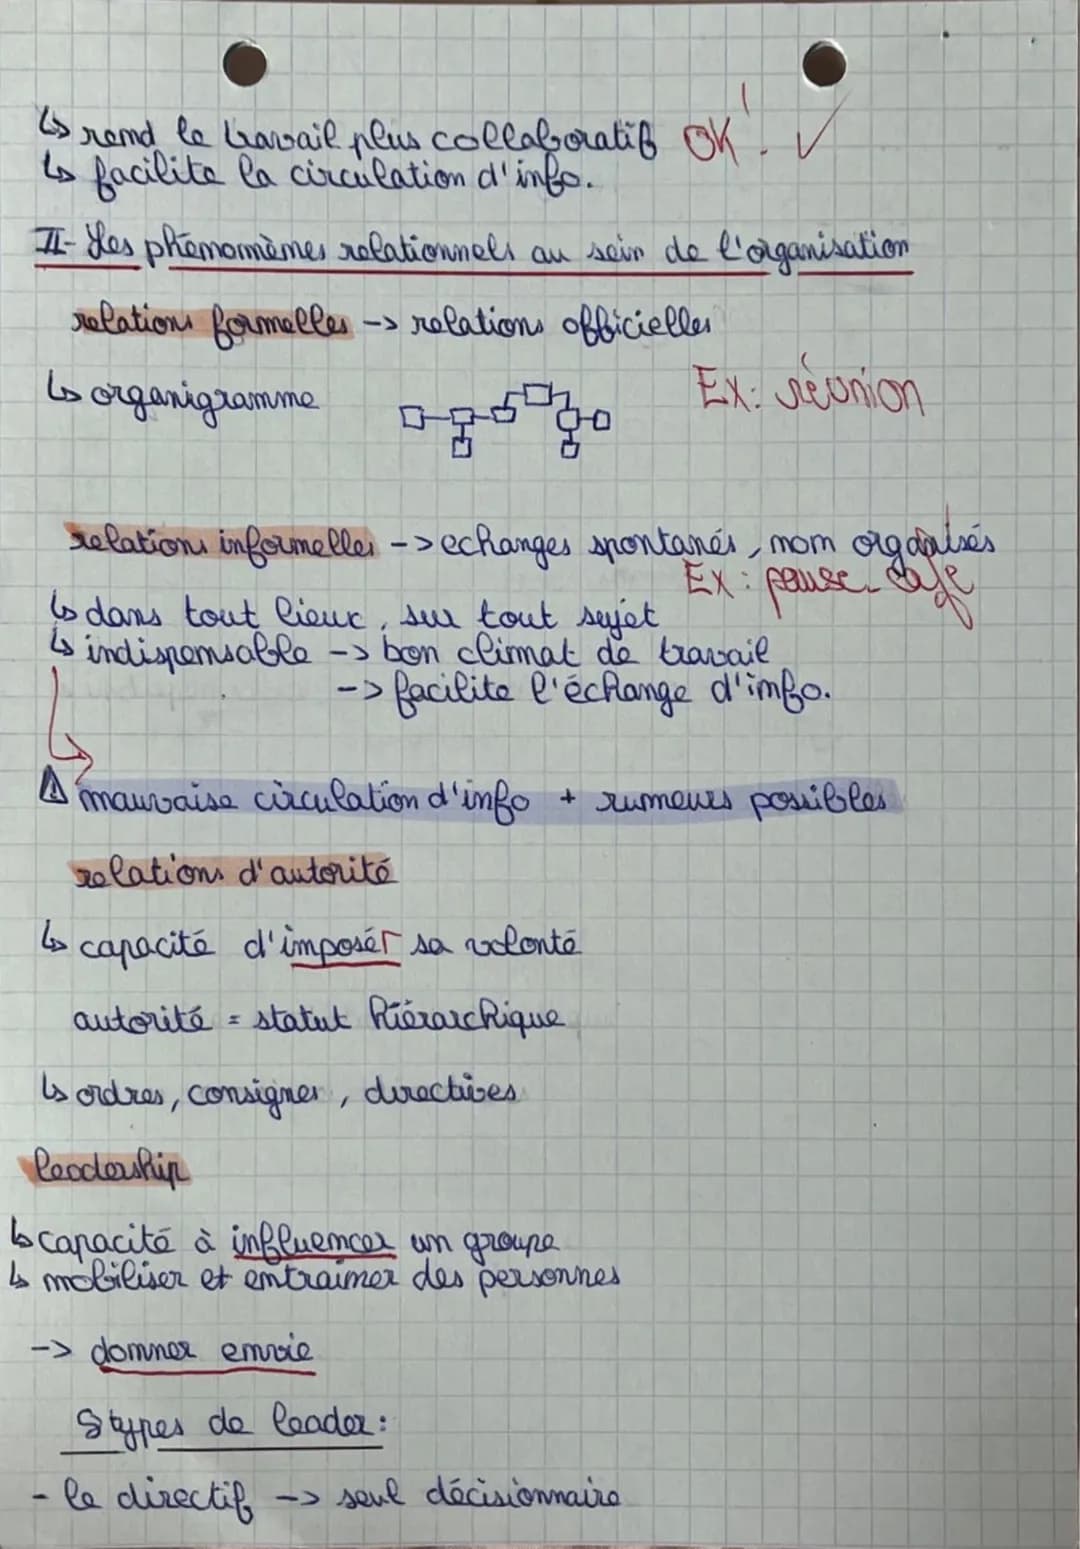 ↳ rend le travail plus collaboratif OK! ✓
↳ facilite la circulation d'info.
II- Les phénomènes relationnels au sein de l'organisation
relations formelles -> relations officielles
↳ organigramme Ex: réunion
relations informelles -> echanges spontanés, non organisés
Ex: pause café
↳ dans tout lieux, sur tout sujet
↳ indispensable -> bon climat de travail
-> facilite l'échange d'info.
⚠ mauvaise circulation d'info + rumeurs possibles
relations d'autorité
↳ capacité d'imposer sa volonté
autorité = statut hiérarchique
↳ ordres, consignes, directives
leadership
↳ capacité à influencer un groupe
↳ mobiliser et entrainer des personnes
-> donner envie
types de leader:
- le directif -> seul décisionnaire